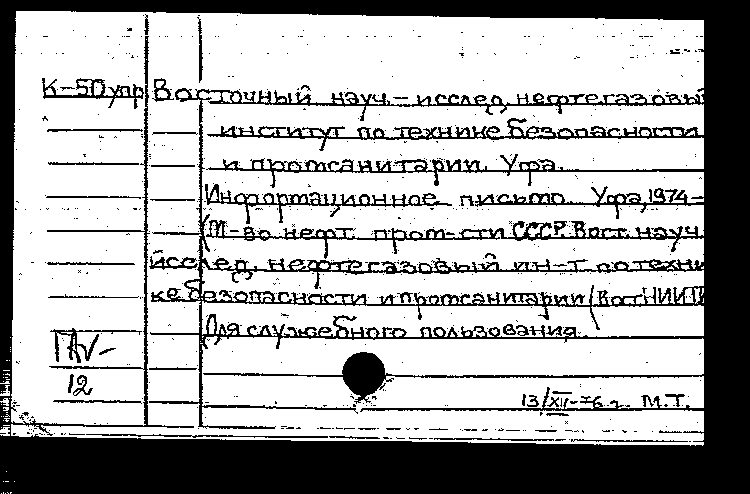 К-50упр Восточный науч.-исслед. нефтегазовый
институт по технике безопасности
и промсанитарии. Уфа.
Информационное письмо. Уфа, 1974-
(М-во нефт. пром-сти СССР. Вост. науч.
исслед. нефтегазовый ин-т по техни
ке безопасности и промсанитарии (ВостНИИТБ
Для служебного пользования.
12
13/XII-76 г. М.Т.